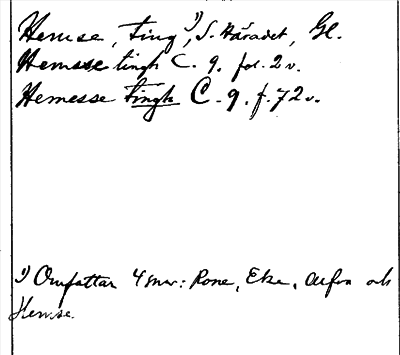 Hemse, ting ¹), S. Häradet, Gl.
Hemsse tingh C. 9. fol. 2 v.
Hemesse tingh C. 9. f. 72 v.
¹) Omfattar 4 snr: Rone, Eke, Alfva och
Hemse.